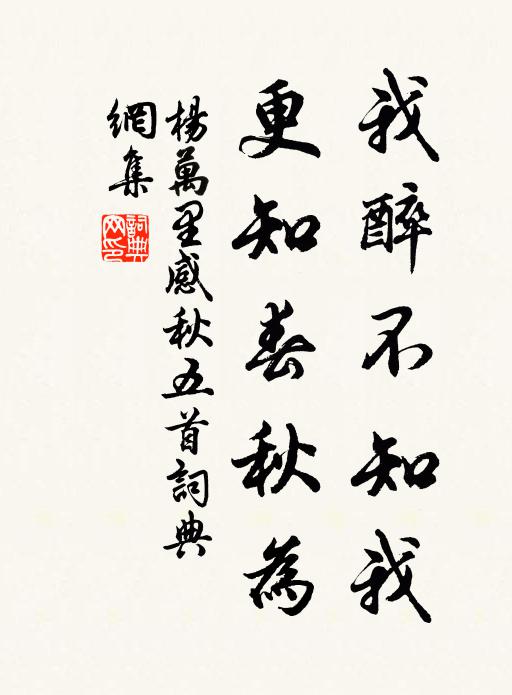 我醉不知我
更知春秋為
楊萬里感秋五首詞典
網集
詞典網印